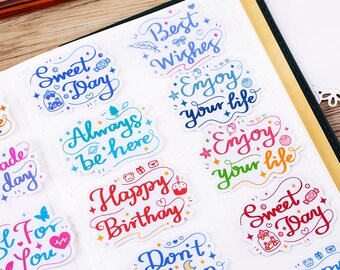 Sweet
Day
Best
Wishes
Enjoy
your life
Always
be here
Enjoy
your life
day
Happy
Birthday
Sweet
Day
For
You
Don't